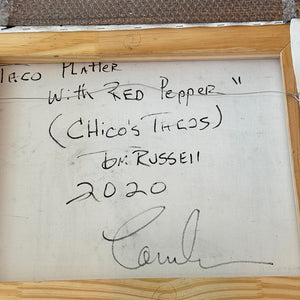 Taco Platter
With Red Pepper"
(Chico's Tacos)
Tom Russell
2020